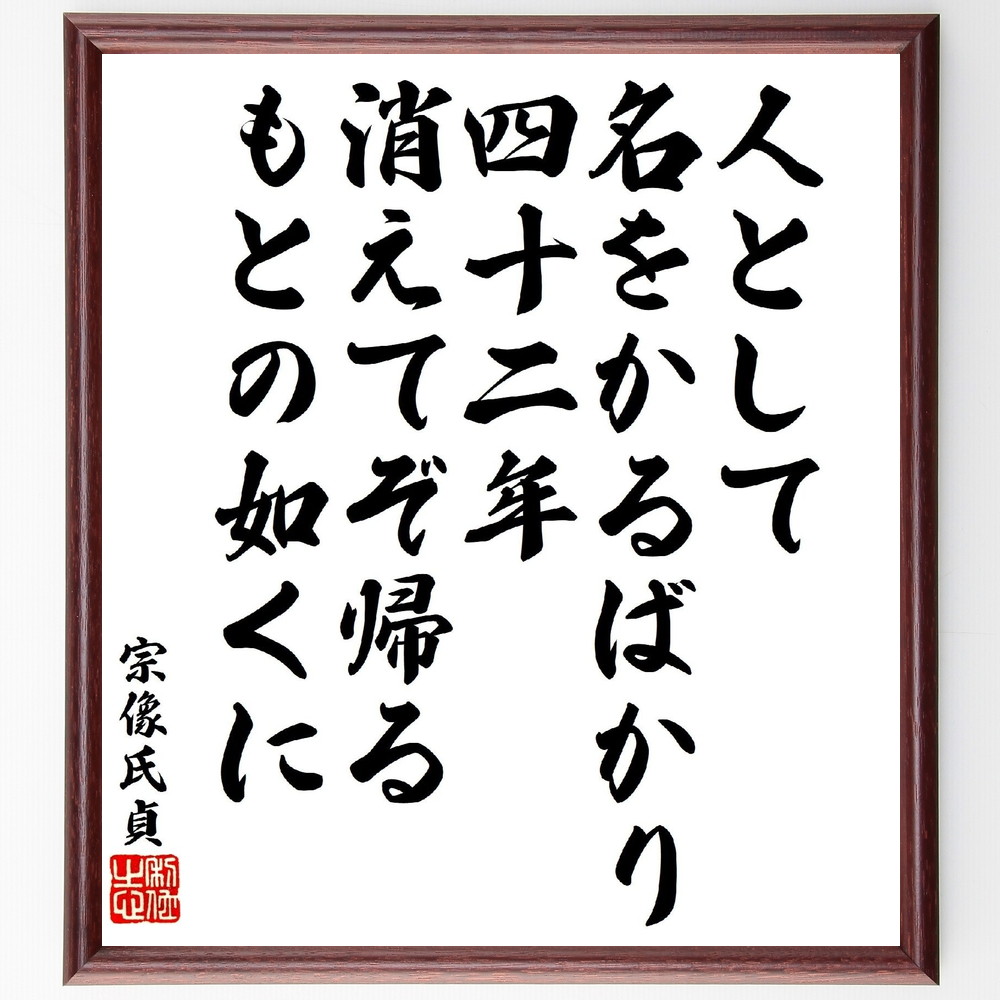 人として
名をかるばかり
四十二年
消えてぞ帰る
もとの如くに
宗像氏貞